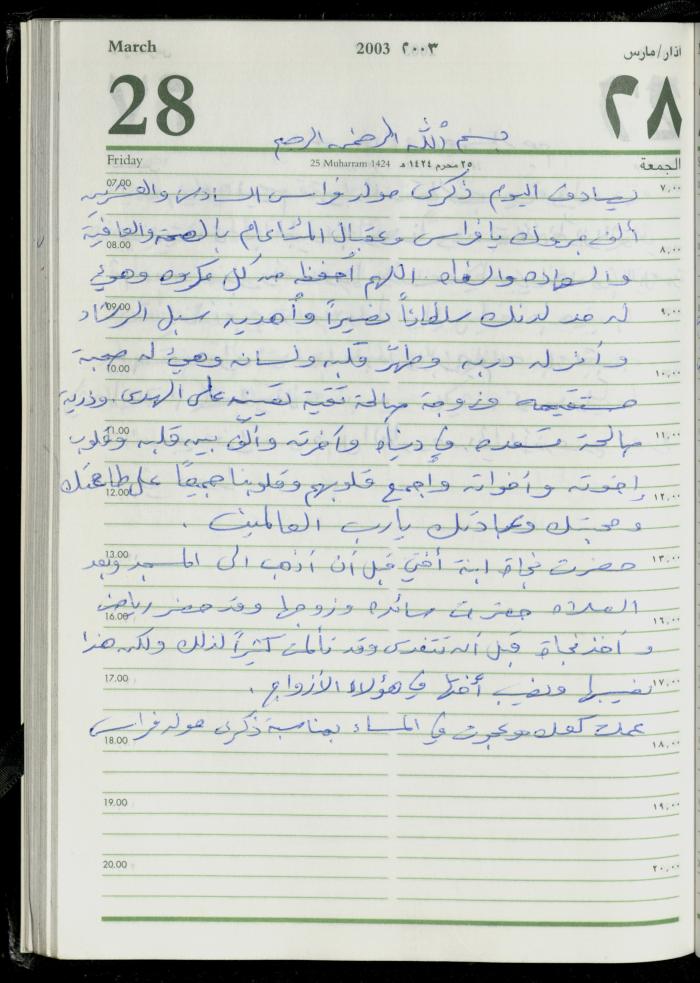 March 2003 ٢٠٠٣ آذار/مارس
28 ٢٨
بسم الله الرحمن الرحيم
Friday 25 Muharram 1424 ٢٥ محرم ١٤٢٤ هـ الجمعة
07.00 ٧,٠٠
يصادف اليوم ذكرى مولد فراس السادس والعشرين
ألف مبروك يا فراس وعقبال المئة عام بالصحة والعافية
08.00 ٨,٠٠
والسعادة والهناء اللهم احفظه من كل مكروه وهيئ
09.00 ٩,٠٠
له من لدنك سلطاناً نصيراً وأهديه سبل الرشاد
وأنر له دربه وطهّر قلبه ولسانه وهيئ له صحبة
10.00 ١٠,٠٠
مستقيمه وزوجة صالحة تقية تعينه على الهدى وذرية
11.00 ١١,٠٠
صالحة تسعده في دنياه وآخرته وألّف بين قلبه وقلوب
إخوته وأخواته وأجمع قلوبهم وقلوبنا جميعاً على طاعتك
12.00 ١٢,٠٠
ومحبتك وعبادتك يا رب العالمين .
13.00 ١٣,٠٠
حضرت نجاة ابنة أختي قبل أن أذهب الى المسجد وبعد
الصلاة حضرت مائده وزوجها وقد حضر رياض
16.00 ١٦,٠٠
وأخذ نجاة قبل أن تتغدى وقد تألمت كثيراً لذلك ولكن هذا
17.00 ١٧,٠٠
نصيبها ونصيب أختها في هؤلاء الأزواج .
عملت كعك وعجوة في المساء بمناسبة ذكرى مولد فراس
18.00 ١٨,٠٠
19.00 ١٩,٠٠
20.00 ٢٠,٠٠